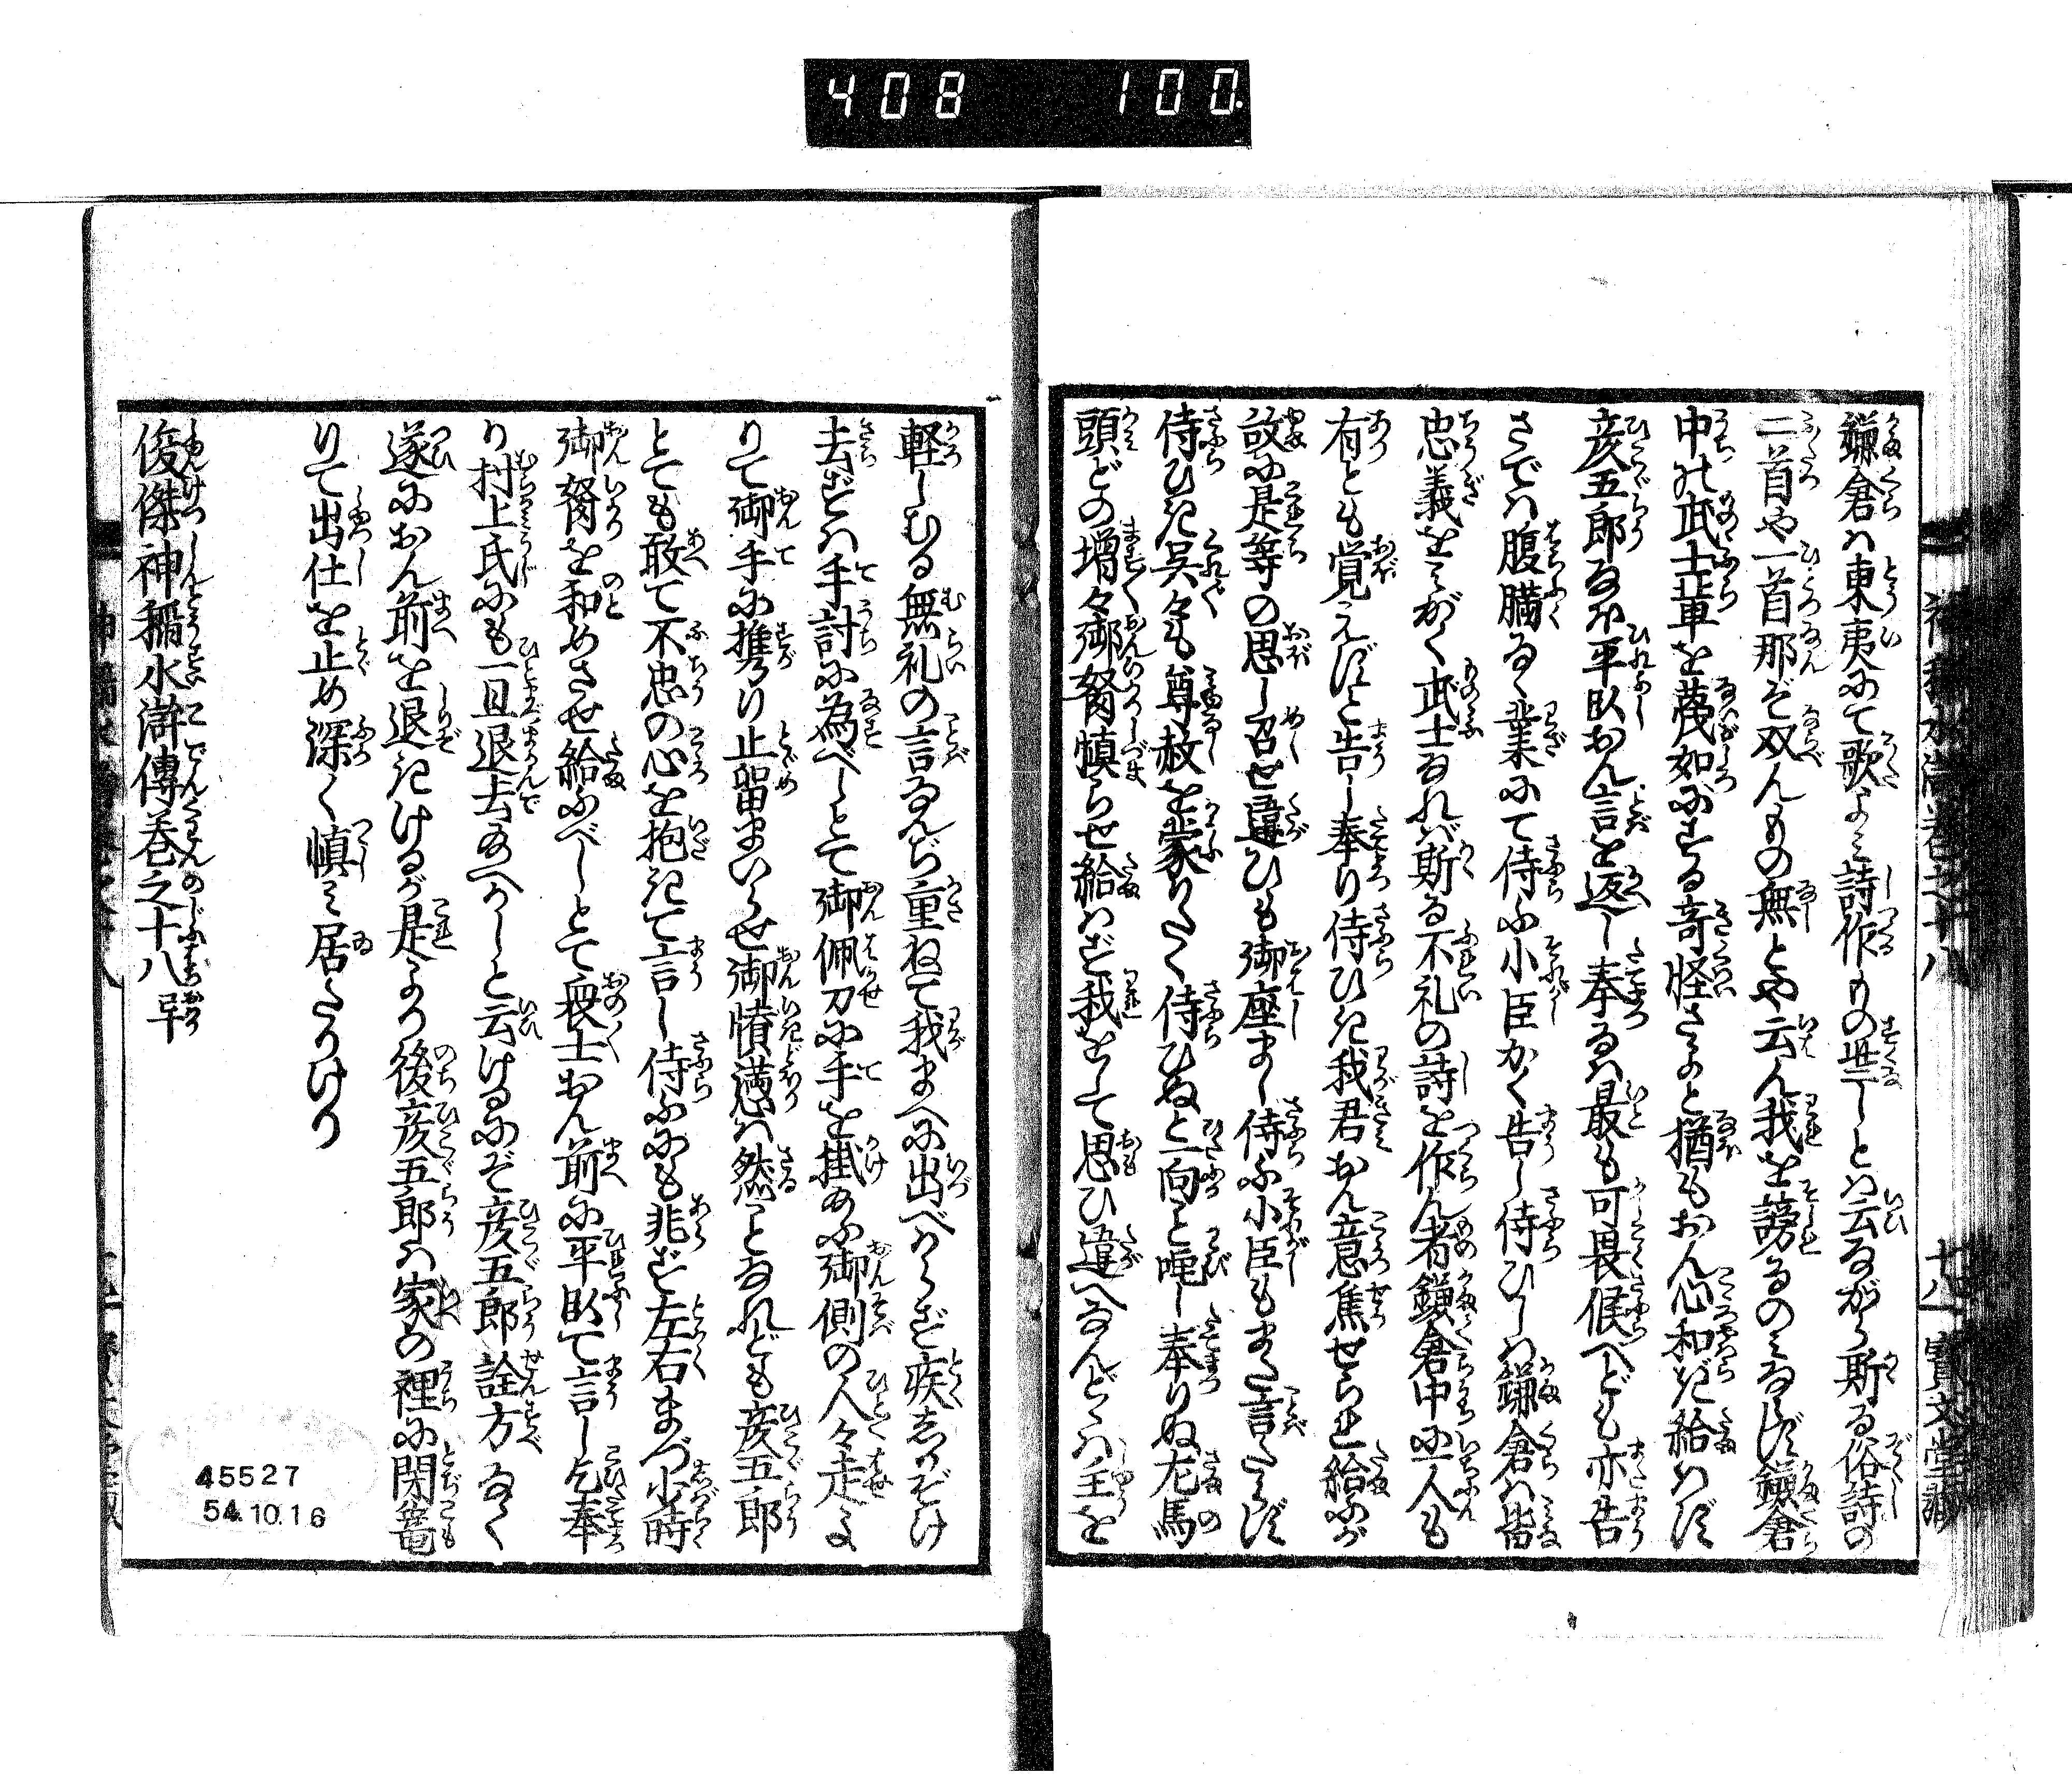 408 100.
鎌倉ハ東夷にて歌よミ詩作もの世しとハ云ながら斯る俗詩の
二首や一首那ぞ双んもの無とや云ん我を謗るのミならず鎌倉
中の武士輩を蔑如にする奇怪さよと猶もおん心和ぎ給はず
彦五郎なほ平臥おん言を返し奉るハ最も可畏候へども亦告
さでハ腹膓るゝ業にて侍ふ小臣かく告し侍ひしハ鎌倉ハ皆
忠義をミがく武士なれバ斯る不礼の詩を作ん者鎌倉中に一人も
有とも覚えずと告し奉り侍ひき我君おん意焦せられ給ふが
故に是等の思し召せ違ひも御座まし侍ふ小臣もまた言たらず
侍ひき呉々も尊赦を蒙りたく侍ひぬと一向と唯し奉りぬ左馬
頭どの増々御努慎らせ給ハず我をして思ひ違へなんどゝハ主を
軽しむる無礼の言なんぢ重ねて我まへに出べからず疾しりぞけ
去ずハ手討に為べしとて御佩刀に手を掛あふ御側の人々走よ
りて御手に携り止留まいらせ御憤懣ハ然ことなれども彦五郎
とても敢て不忠の心を抱きて言し侍ふにも非ず左右まづ小時
御努を和めさせ給ふべしとて衆士おん前に平臥て言し乞奉
り村上氏にも一旦退去玉へかしと云けるにぞ彦五郎詮方なく
遂におん前を退きけるが是より後彦五郎ハ家の裡に閉篭
りて出仕を止め深く慎ミ居たりけり
俊傑神稲水滸傳巻之十八 畢
45527
54.10.16